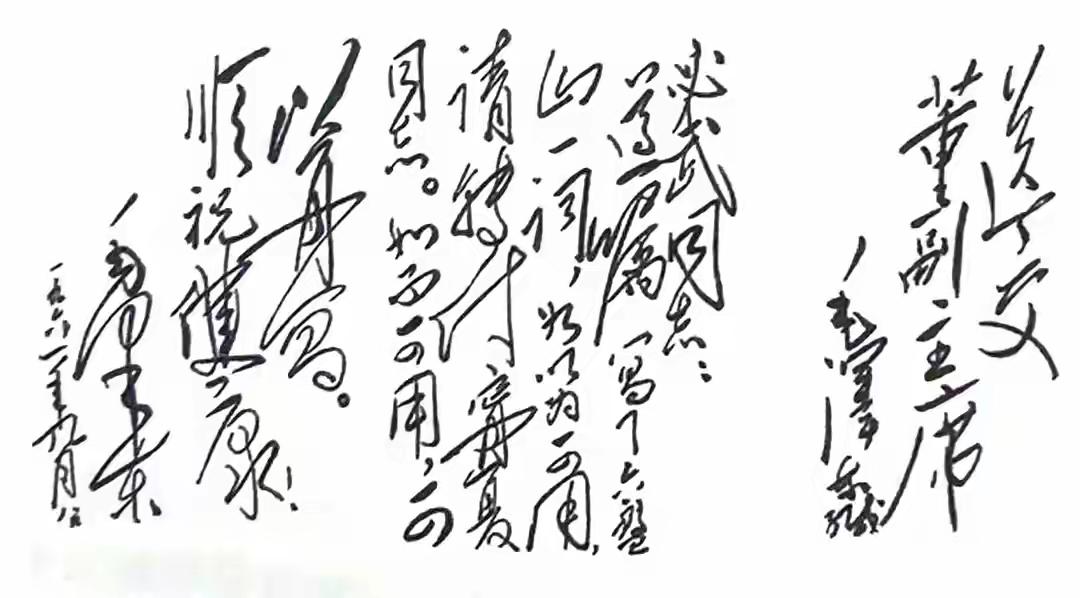 送交
董副主席
毛泽东缄
必武同志：
遵嘱写了六盘
山一词，如以为可用，
请转付宁夏
同志。如不可用，可
以再写。
顺祝健康！
毛泽东
一九六一年九月八日